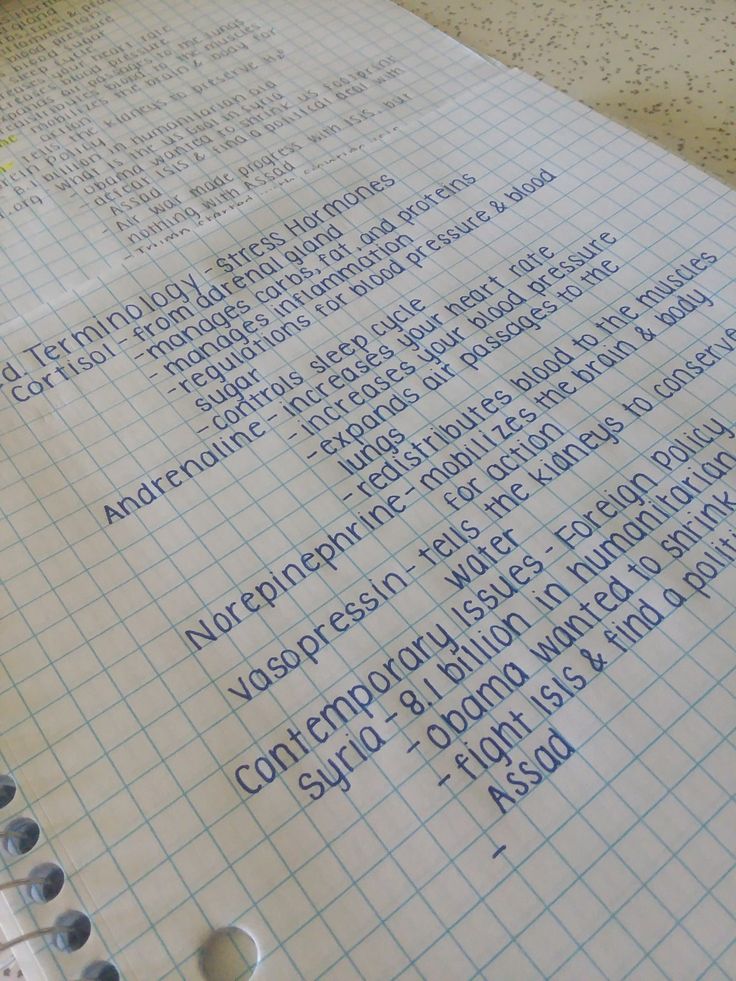 heart rate
pressure
mobilizes the brain & body for
action
tells the kidneys to preserve H2O
8.1 billion in humanitarian aid
what is the US goal in Syria
- Obama wanted to shrink US footprint
defeat ISIS & find a political deal with
Assad
- Air war made progress with ISIS, but
nothing with Assad
d. Terminology - Stress Hormones
Cortisol - from adrenal gland
- manages carbs, fat, and proteins
- manages inflammation
- regulations for blood pressure & blood
sugar
- controls sleep cycle
Andrenaline - increases your heart rate
- increases your blood pressure
- expands air passages to the
lungs
- redistributes blood to the muscles
Norepinephrine - mobilizes the brain & body
for action
vasopressin - tells the kidneys to conserve
water
Contemporary Issues - Foreign Policy
Syria - 8.1 billion in humanitarian
- Obama wanted to shrink
- fight ISIS & find a politi
Assad
-